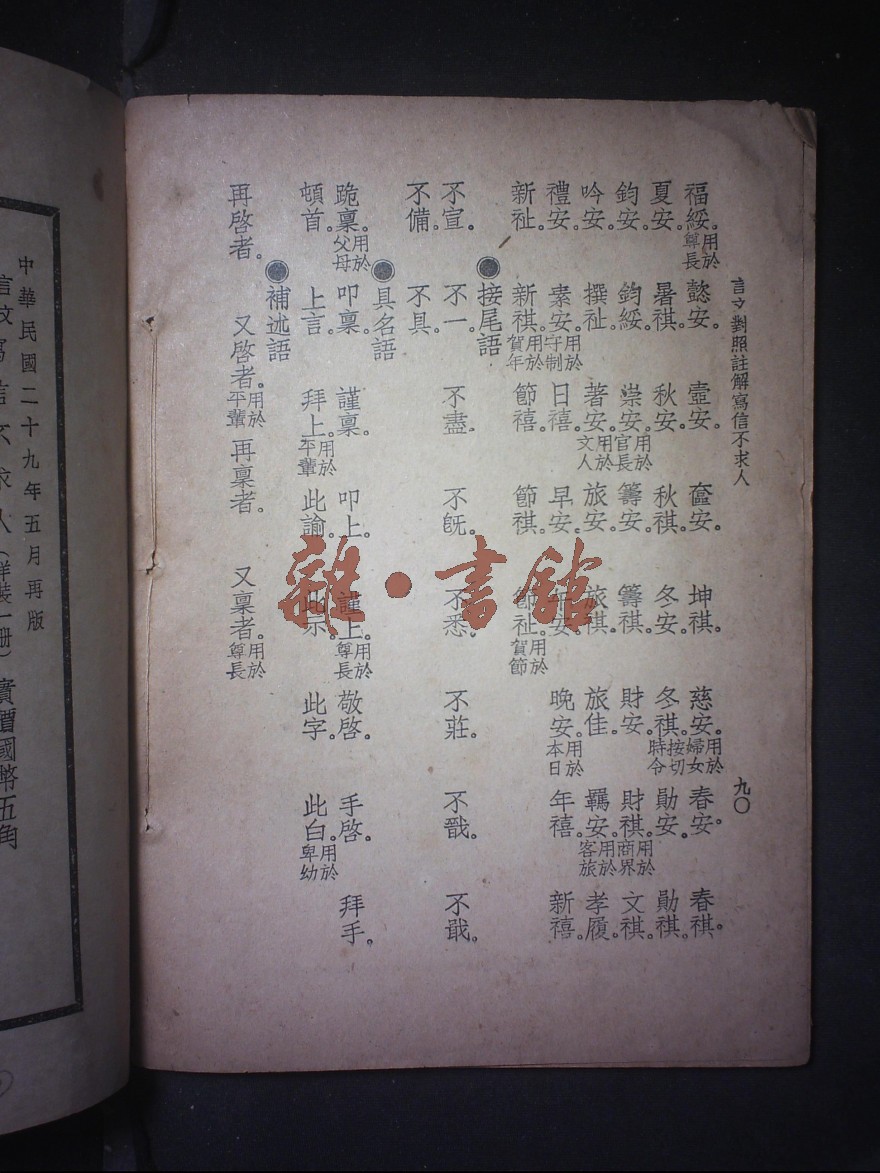 言文對照註解寫信不求人
九〇
福綏。用於尊長 懿安。壼安。奩安。坤祺。慈安。用於婦女 春安。春祺。
夏安。暑祺。秋安。秋祺。冬安。冬祺。按切時令 勛安。勛祺。
鈞安。鈞綏。崇安。用於官長 籌安。籌祺。財安。財祺。用於商界 文祺。
吟安。撰祉。著安。用於文人 旅安。旅祺。旅佳。羈安。用於客旅 孝履。
禮安。素安。用於守制 日禧。早安。午安。晚安。用於本日 年禧。新禧。
新祉。新祺。用於賀年 節禧。節祺。節祉。用於賀節
●接尾語
不宣。不一。不盡。不旣。不悉。不莊。不戬。不戢。
不備。不具。
●具名語
跪稟。用於父母 叩稟。謹稟。叩上。謹上。用於尊長 敬啓。手啓。拜手。
頓首。上言。拜上。用於平輩 此諭。此示。此字。此白。用於卑幼
●補述語
再啓者。又啓者。用於平輩 再稟者。又稟者。用於尊長
中華民國二十九年五月再版
言文 寫信不求人（洋裝一冊）實價國幣五角
雜·書館